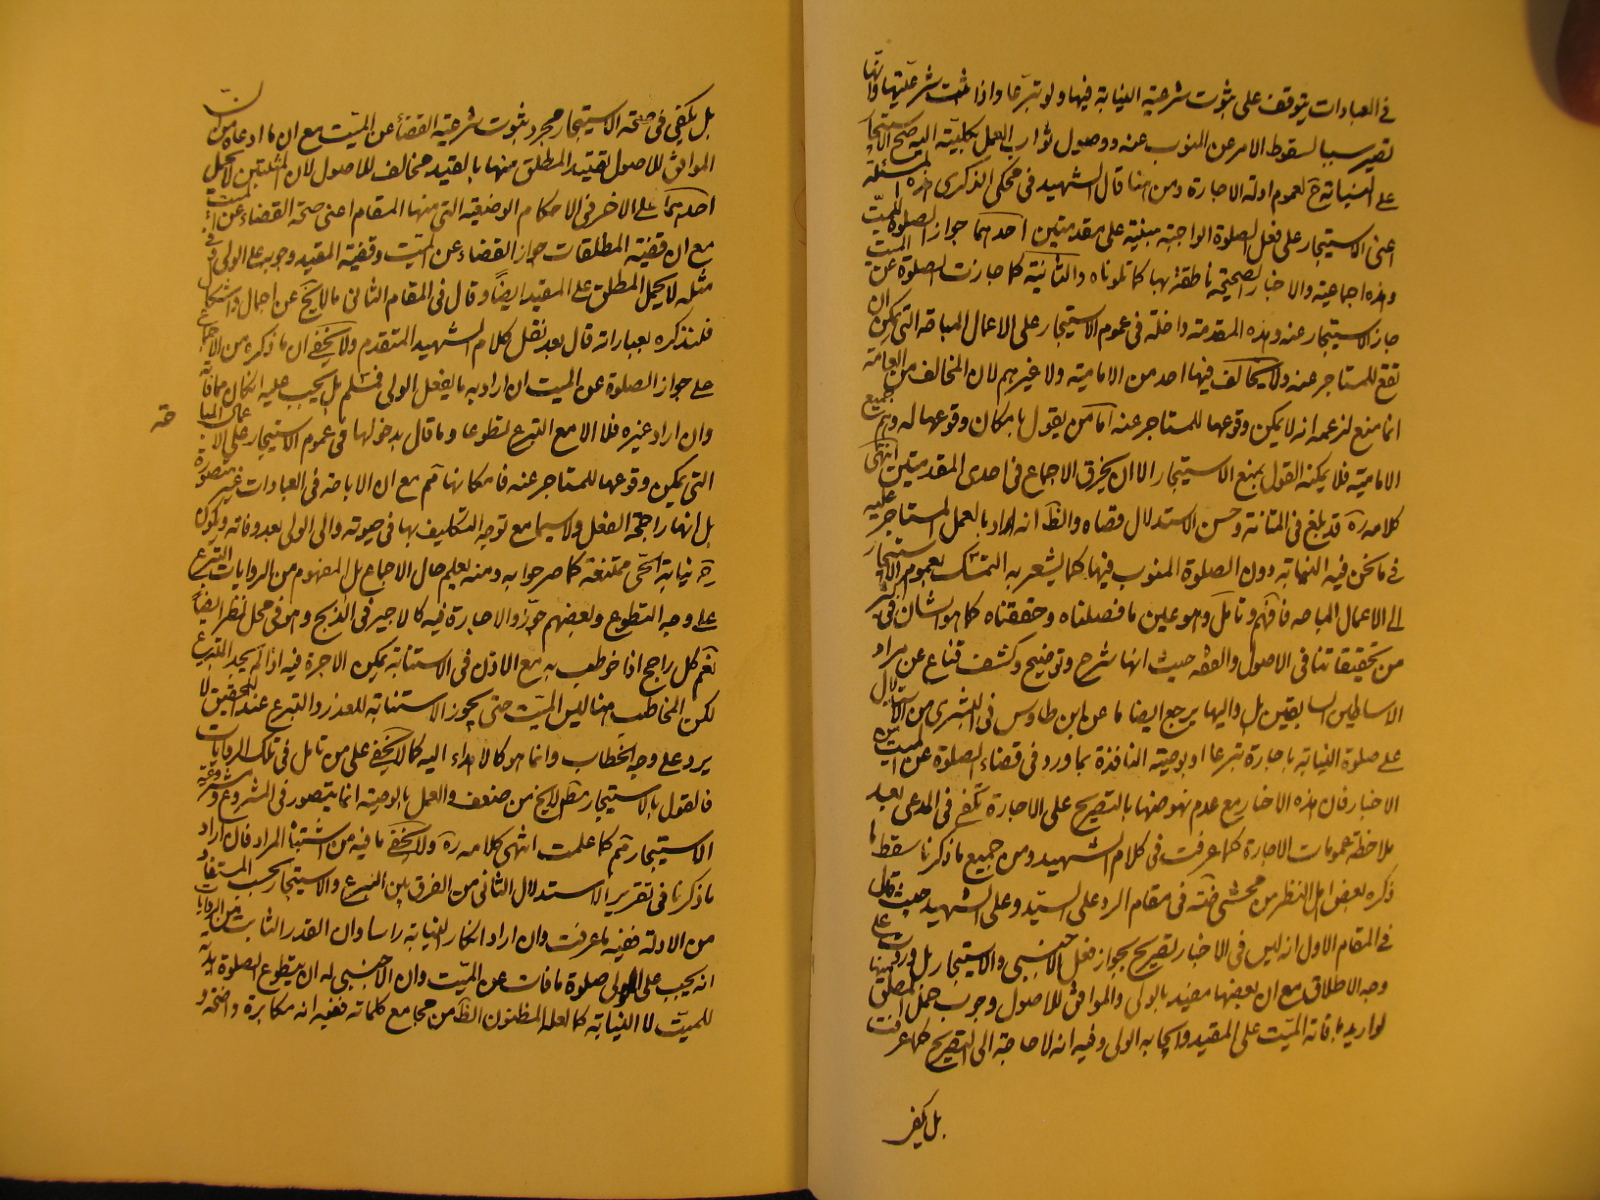 في العبادات يتوقف على ثبوت شرعية النيابة فيها ولو تبرعا واذا ثبت شرعيتها وانها
تصير سببا لسقوط الامر عن المنوب عنه ووصول ثواب العمل بكليته اليه صح الاستيجار
على النيابة ح لعموم ادلة الاجارة ومن هنا قال الشهيد في محكي الذكرى هذه المسئلة
اعنى الاستيجار على فعل الصلوة الواجبة مبنية على مقدمتين احدهما جواز الصلوة للميت
وهذه اجماعية والاخبار الصحيحة ناطقة بها كما تلوناه والثانية كلما جازت الصلوة عن الميت
جاز الاستيجار عنه وهذه المقدمة داخلة في عموم الاستيجار على الاعمال المباحة التي يمكن ان
تقع للمستاجر عنه ولا يخالف فيها احد من الامامية ولا غيرهم لان المخالف من العامة
انما منع لزعمه انه لا يمكن وقوعها للمستاجر عنه اما من يقول بامكان وقوعها له وهم جميع
الامامية فلا يمكنه القول بمنع الاستيجار الا ان يخرق الاجماع في احدى المقدمتين انتهى
كلامه ره قد بلغ في المتانة وحسن الاستدلال قصاه والظ انه اراد بالعمل المستاجر عليه
في ما نحن فيه النيابة دون الصلوة المنوب فيها كما يشعر به التمسك بعموم الاستيجار
الى الاعمال المباحه فافهم وتامل وهو عين ما فصلناه وحققناه كما هو الشان في اكثر
من تحقيقاتنا في الاصول والفقه حيث انها شرح وتوضيح وكشف قناع عن مراد
الاساطين السابقين بل واليها يرجع ايضا ما عن ابن طاوس في البشرى من الاستدلال
على صلوة النيابة باجارة تبرعا او بوصية النافذة بما ورد في قضاء الصلوة عن الميت
الاخبار فان هذه الاخبار مع عدم نهوضها بالتصريح على الاجارة تكفي في المدعى بعد
ملاحظة عمومات الاجارة كما عرفت في كلام الشهيد ومن جميع ما ذكرنا سقط ما
ذكره بعض اهل النظر من محشي ضة في مقام الرد على السيد وعلى الشهيد حيث قال
في المقام الاول انه ليس في الاخبار تصريح بجواز فعل الاجنبي والاستيجار بل ورد فيها على
وجه الاطلاق مع ان بعضها مقيد بالولي والموافق للاصول وجوب حمل المطلق منها
لو اريد ما فاته الميت على المقيد وايجابه الولي وفيه انه لا حاجة الى التصريح كما عرفت
بل يكفي
بل يكفي في صحة الاستيجار مجرد ثبوت شرعية القضاء عن الميت مع ان ما ادعاه من ان
الموافق للاصول تقييد المطلق منها بالمقيد مخالف للاصول لان المثبتين لا يحمل
احدهما على الاخر في الاحكام الوضعية التي منها المقام اعنى صحة القضاء عن الميت
مع ان قضية المطلقات جواز القضاء عن الميت وقضية المقيد وجوبه على الولي وفي
مثله لا يحمل المطلق على المقيد ايضا وقال في المقام الثاني ما لا يخ عن اجمال واشكال
فلنذكره بعباراته قال بعد نقل كلام الشهيد المتقدم ولا يخفى ان ما ذكره من الاجماع
على جواز الصلوة عن الميت ان اراد به ما يفعل الولي فمسلم بل يجب عليه ان كان مما فاته
وان اراد غيره فلا الا مع التبرع تطوعا وما قال بدخولها في عموم الاستيجار على الاعمال المبا
حه
التي يمكن وقوعها للمستاجر عنه فامكانها مم مع ان الاباحة في العبادات غير متصورة
بل انها راجحة الفعل ولا سيما مع توجه التكليف بها في حيوته والى الولي بعد وفاته وتكون
ح نيابة الحي ممتنعة كما صرحوا به ومنه يعلم حال الاجماع بل المفهوم من الروايات التبرع
على وجه التطوع وبعضهم جوزوا الاجارة فيه كالاجير في الذبح وهو في محل نظر ايضا
نعم كل راجح اذا خوطب به مع الاذن في الاستنابة يمكن الاجرة فيه اذا لم يجد التبرع
لكن المخاطب هنا ليس الميت حتى يجوز الاستنابة للعذر والتبرع عند التحقيق لا
يرد على وجه الخطاب وانما هو كالاهداء اليه كما لا يخفى على من تامل في تلك الروايات
فالقول بالاستيجار مط لا يخ من ضعف والعمل بالوصية انما يتصور في المشروع ومشروعية
الاستيجار مم كما علمت انتهى كلامه ره ولا يخفى ما فيه من اشتباه المراد فان اراد
ما ذكرنا في تقرير الاستدلال الثاني من الفرق بين التبرع والاستيجار بحسب المستفاد
من الادلة ففيه ما عرفت وان اراد انكار النيابة راسا وان القدر الثابت من الروايات
انه يجب على الولي صلوة ما فات عن الميت وان الاجنبي له ان يتطوع بصلوة يهديه
للميت لا النيابة كما لعله المظنون الظ من مجامع كلماته ففيه انه مكابرة واضحة و